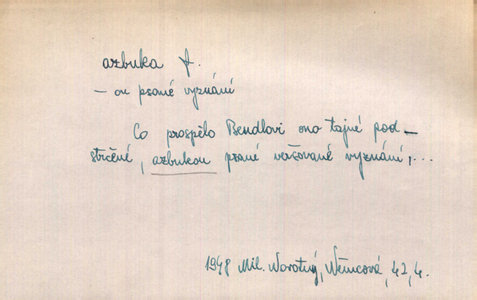 azbuka f.
– ou psané vyznání
Co prospělo Bendlovi ono tajné pod-
strčené, azbukou psané veršované vyznání,...
1948 Mil. Novotný, Němcová, 42,4.